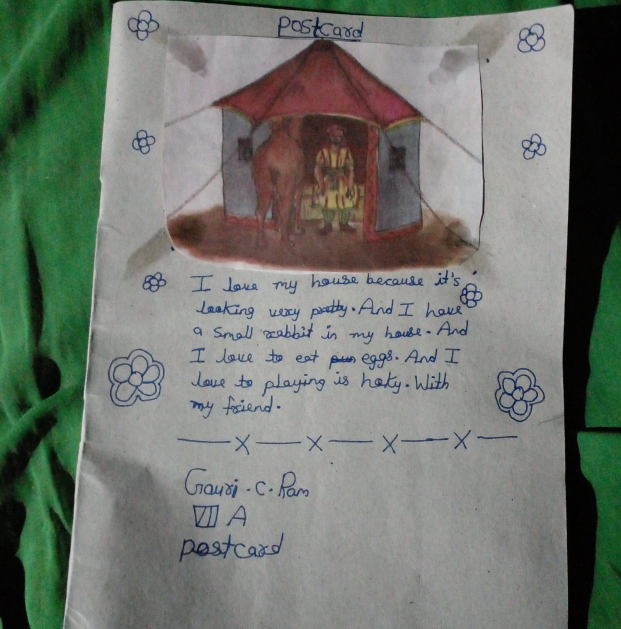 postcard
I love my house because it's
looking very pretty. And I have
a small rabbit in my house. And
I love to eat eggs. And I
love to playing is hoky. With
my friend.
Gauri . C . Ram
VII A
postcard